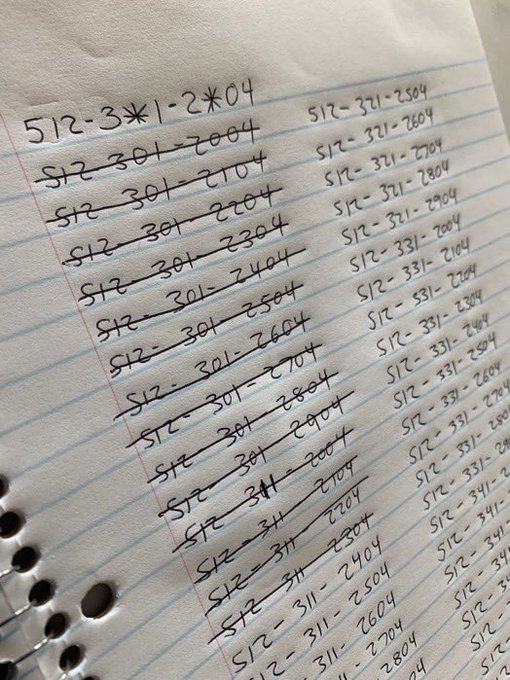 512-3*1-2*04
512-301-2004
512-301-2104
512-301-2204
512-301-2304
512-301-2404
512-301-2504
512-301-2604
512-301-2704
512-301-2804
512-301-2904
512-311-2004
512-311-2104
512-311-2204
512-311-2304
512-311-2404
512-311-2504
512-311-2604
311-2704
2804
512-321-2504
512-321-2604
512-321-2704
512-321-2804
512-321-2904
512-331-2004
512-331-2104
512-331-2204
512-331-2304
512-331-2404
512-331-2504
512-331-2604
512-331-2704
512-331-280
512-331-290
512-341-2
512-341-
512-341
512-341
512-34
512-3